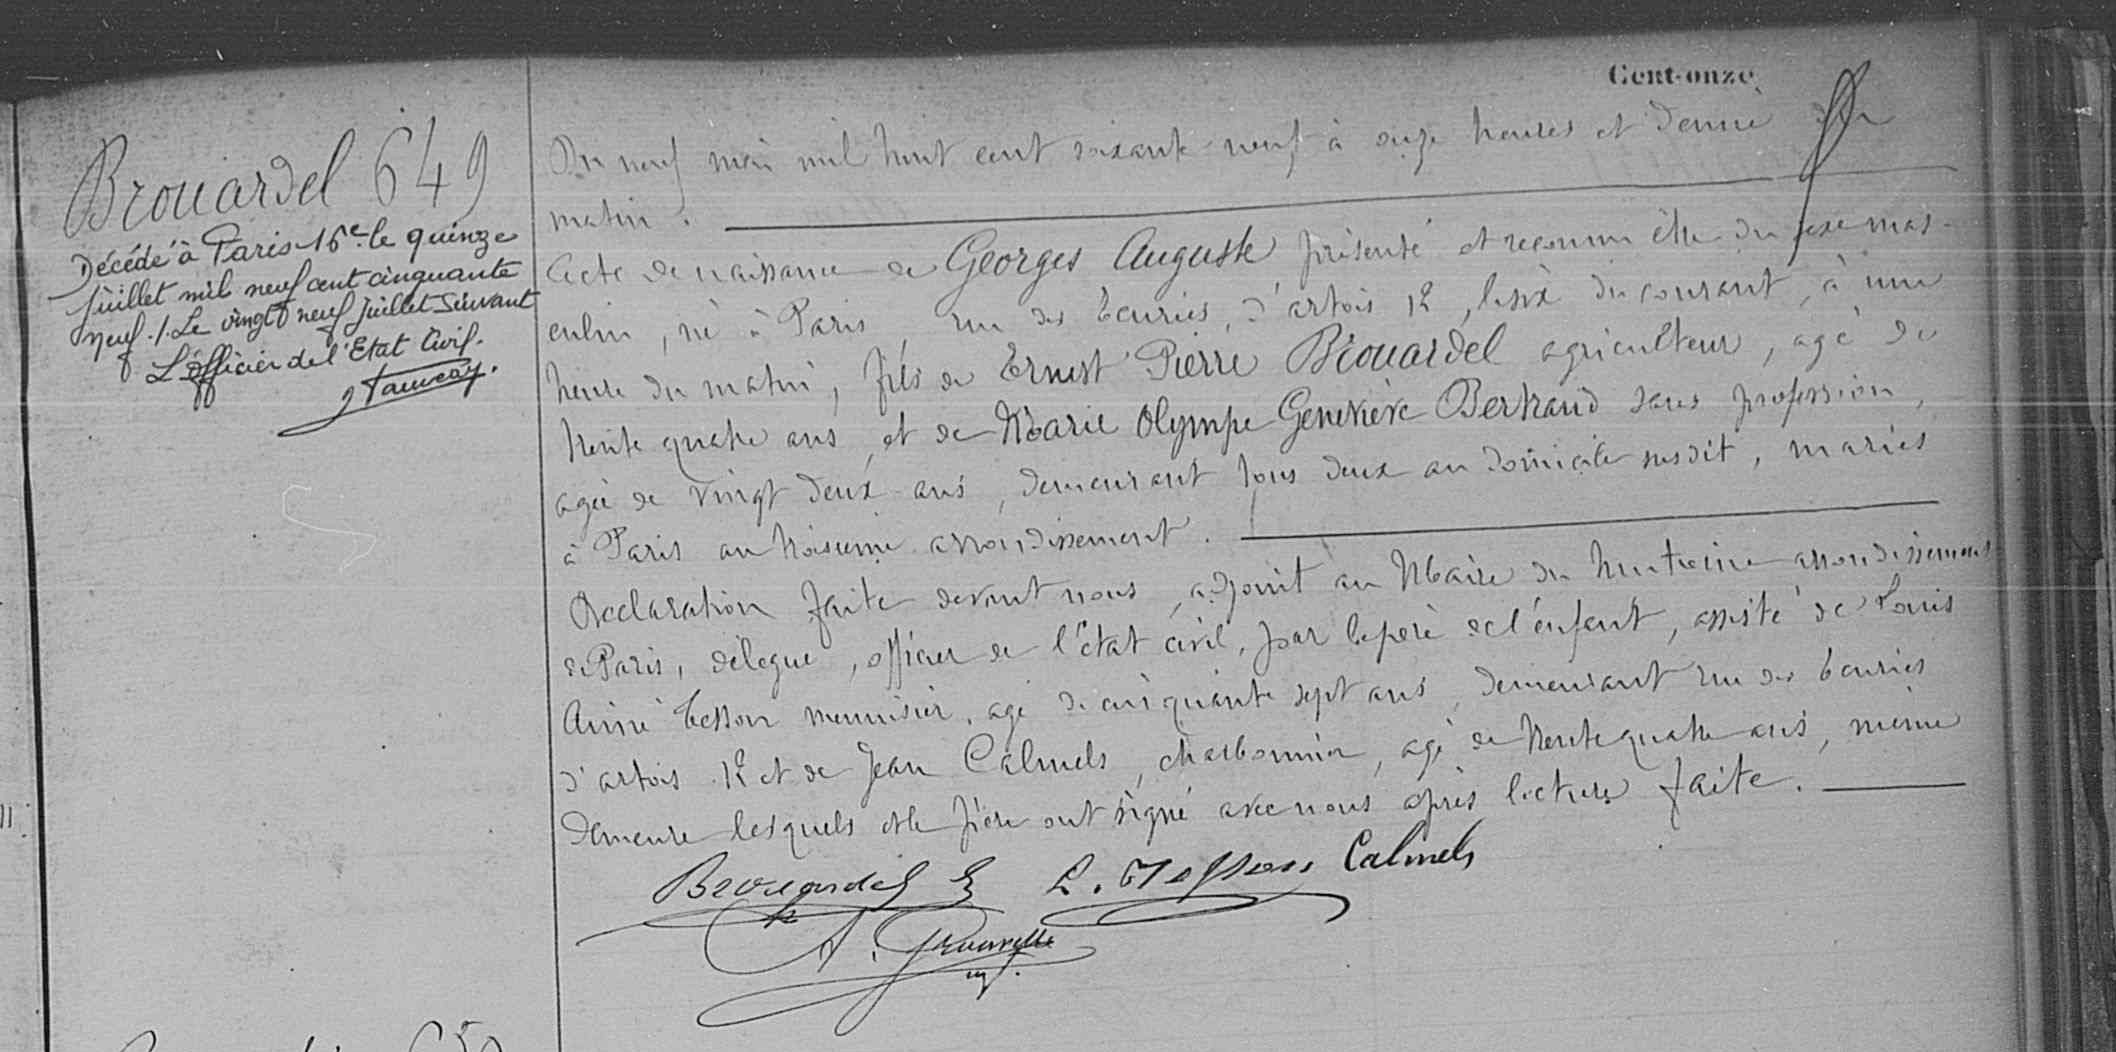 Cent-onze
Brouardel 649
Décédé à Paris 16e le quinze
juillet mil neuf cent cinquante
neuf ./. Le vingt neuf juillet suivant
L'officier de l'Etat Civil.
Du neuf mai mil huit cent soixante neuf à onze heures et demie du
matin.
Acte de naissance de Georges Auguste présenté et reconnu être du sexe mas-
culin, né à Paris, rue des Ecuries, d'artois 12, le six du courant, à une
heure du matin, fils de Ernest Pierre Brouardel agriculteur, agé de
trente quatre ans, et de Marie Olympe Geneviève Bertrand sans profession,
agée de vingt deux ans, demeurant tous deux au domicile susdit, mariés
à Paris au troisième arrondissement.
Déclaration faite devant nous, adjoint au Maire du huitième arrondissement
de Paris, délégué, officier de l'état civil, par le père de l'enfant, assisté de Louis
Aimé Tesson menuisier, agé de cinquante sept ans, demeurant rue des Ecuries
d'artois 12 et de Jean Calmels, charbonnier, agé de trente quatre ans, même
demeure lesquels et le père ont signé avec nous après lecture faite.
Brouardel E L. Tesson Calmels
A. Grouvelle
650